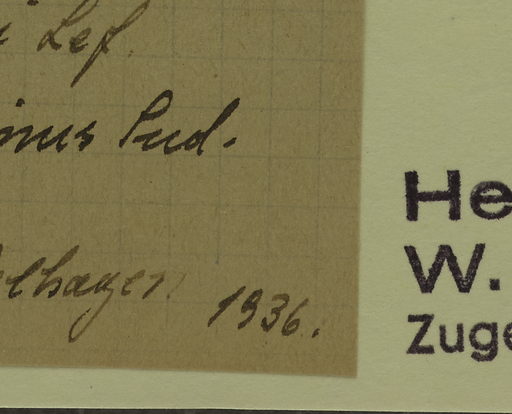 i Lef.
inus Pud.
elhagen 1936.
He
W.
Zuge